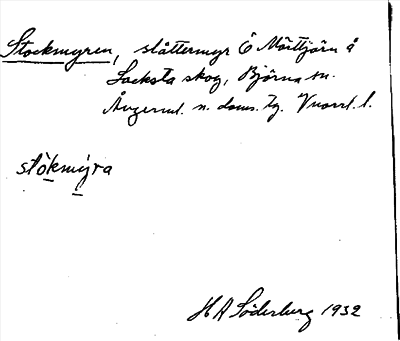 Stockmyren, slåttermyr Ö Mörttjärn å
Locksta skog, Björna sn.
Ångerml. n. doms. tg. Vnorrl. l.
stòkmy̆ra
H A Söderberg 1932